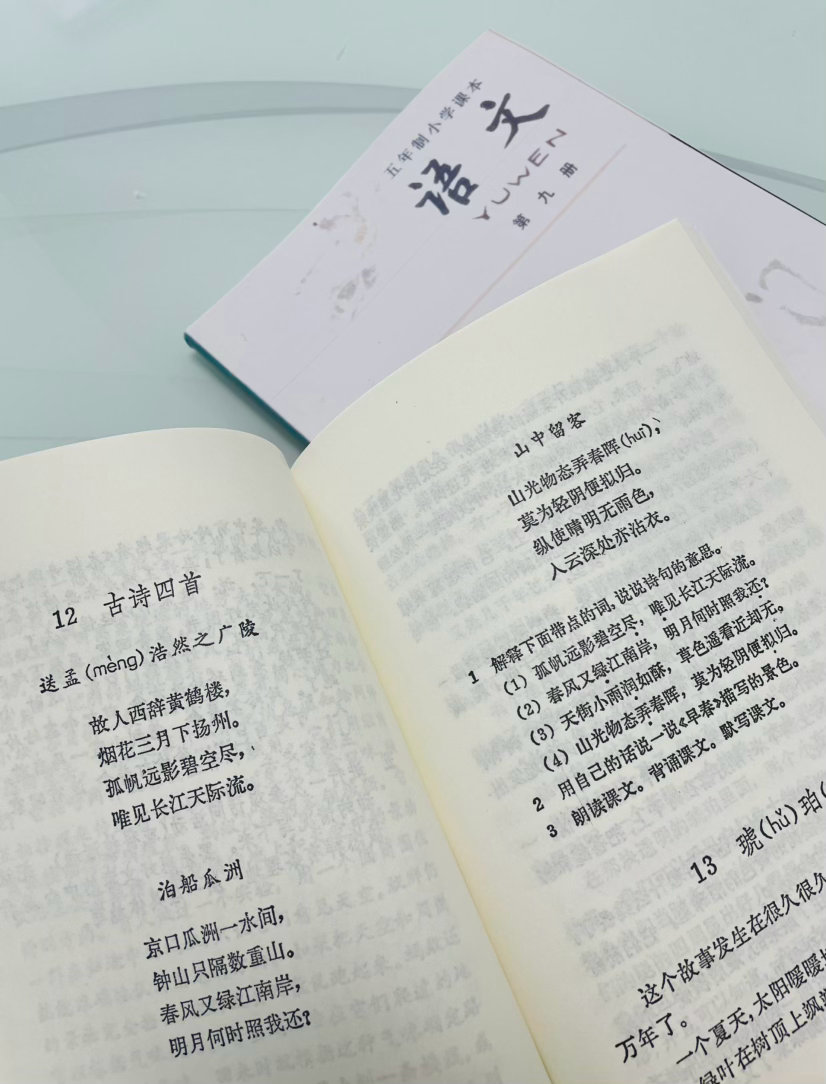 五年制小学课本
语文
YUWEN
第九册
12 古诗四首
送孟(mèng)浩然之广陵
故人西辞黄鹤楼，
烟花三月下扬州。
孤帆远影碧空尽，
唯见长江天际流。
泊船瓜洲
京口瓜洲一水间，
钟山只隔数重山。
春风又绿江南岸，
明月何时照我还？
山中留客
山光物态弄春晖(huī)，
莫为轻阴便拟归。
纵使晴明无雨色，
入云深处亦沾衣。
1 解释下面带点的词，说说诗句的意思。
(1) 孤帆远影碧空尽，唯见长江天际流。
(2) 春风又绿江南岸，明月何时照我还？
(3) 天街小雨润如酥，草色遥看近却无。
(4) 山光物态弄春晖，莫为轻阴便拟归。
2 用自己的话说一说《早春》描写的景色。
3 朗读课文。背诵课文。默写课文。
13 琥(hǔ)珀(
这个故事发生在很久很久
万年了。
一个夏天，太阳暖暖
绿叶在树顶上飒